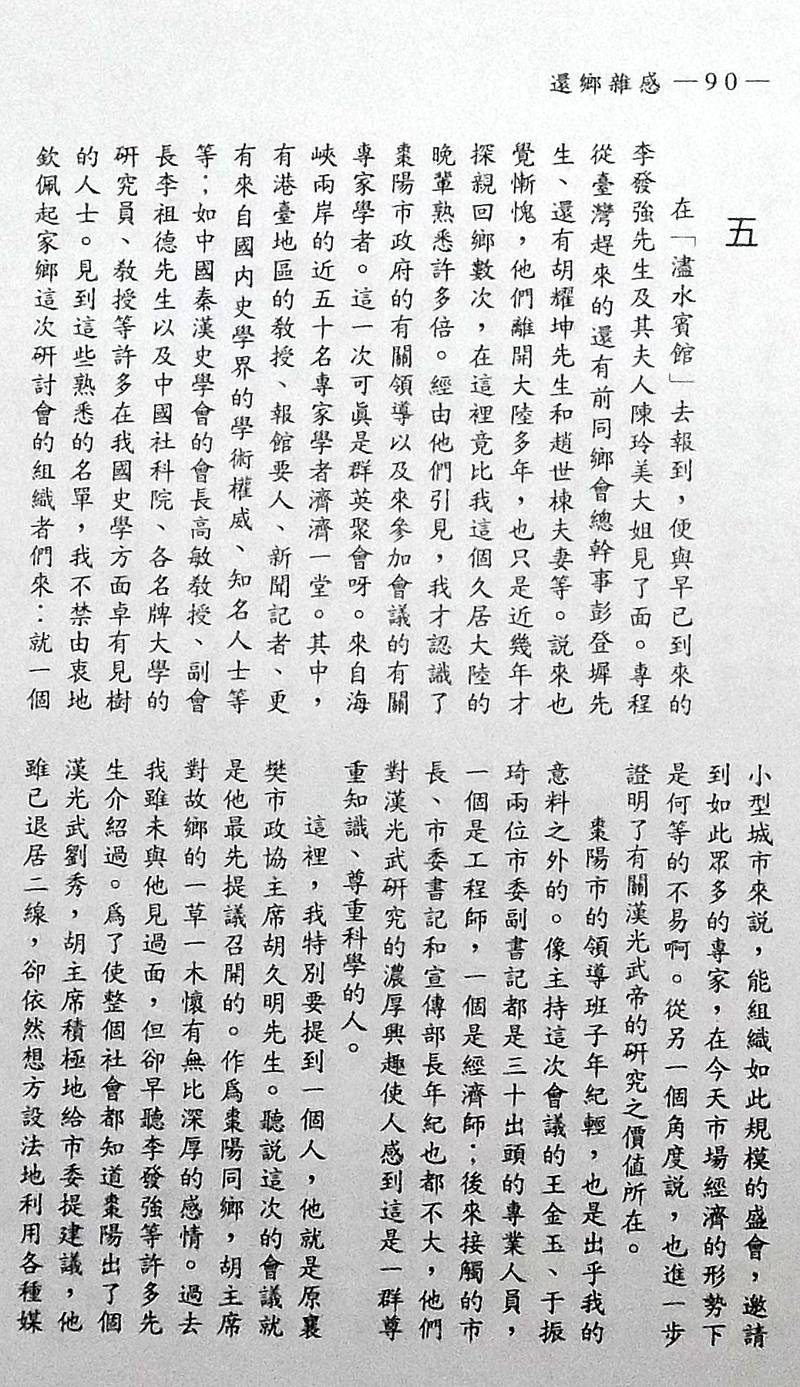 還鄉雜感 —90—
五
在「濜水賓館」去報到，便與早已到來的
李發強先生及其夫人陳玲美大姐見了面。專程
從臺灣趕來的還有前同鄉會總幹事彭登墀先
生、還有胡耀坤先生和趙世棟夫妻等。說來也
覺慚愧，他們離開大陸多年，也只是近幾年才
探親回鄉數次，在這裡竟比我這個久居大陸的
晚輩熟悉許多倍。經由他們引見，我才認識了
棗陽市政府的有關領導以及來參加會議的有關
專家學者。這一次可眞是群英聚會呀。來自海
峽兩岸的近五十名專家學者濟濟一堂。其中，
有港臺地區的教授、報館要人、新聞記者、更
有來自國內史學界的學術權威、知名人士等
等；如中國秦漢史學會的會長高敏教授、副會
長李祖德先生以及中國社科院、各名牌大學的
研究員、教授等許多在我國史學方面卓有見樹
的人士。見到這些熟悉的名單，我不禁由衷地
欽佩起家鄉這次研討會的組織者們來：就一個
小型城市來説，能組織如此規模的盛會，邀請
到如此眾多的專家，在今天市場經濟的形勢下
是何等的不易啊。從另一個角度説，也進一步
證明了有關漢光武帝的研究之價值所在。
棗陽市的領導班子年紀輕，也是出乎我的
意料之外的。像主持這次會議的王金玉、于振
琦兩位市委副書記都是三十出頭的專業人員，
一個是工程師，一個是經濟師；後來接觸的市
長、市委書記和宣傳部長年紀也都不大，他們
對漢光武研究的濃厚興趣使人感到這是一群尊
重知識、尊重科學的人。
這裡，我特別要提到一個人，他就是原襄
樊市政協主席胡久明先生。聽説這次的會議就
是他最先提議召開的。作爲棗陽同鄉，胡主席
對故鄉的一草一木懷有無比深厚的感情。過去
我雖未與他見過面，但卻早聽李發強等許多先
生介紹過。爲了使整個社會都知道棗陽出了個
漢光武劉秀，胡主席積極地給市委提建議，他
雖已退居二線，卻依然想方設法地利用各種媒